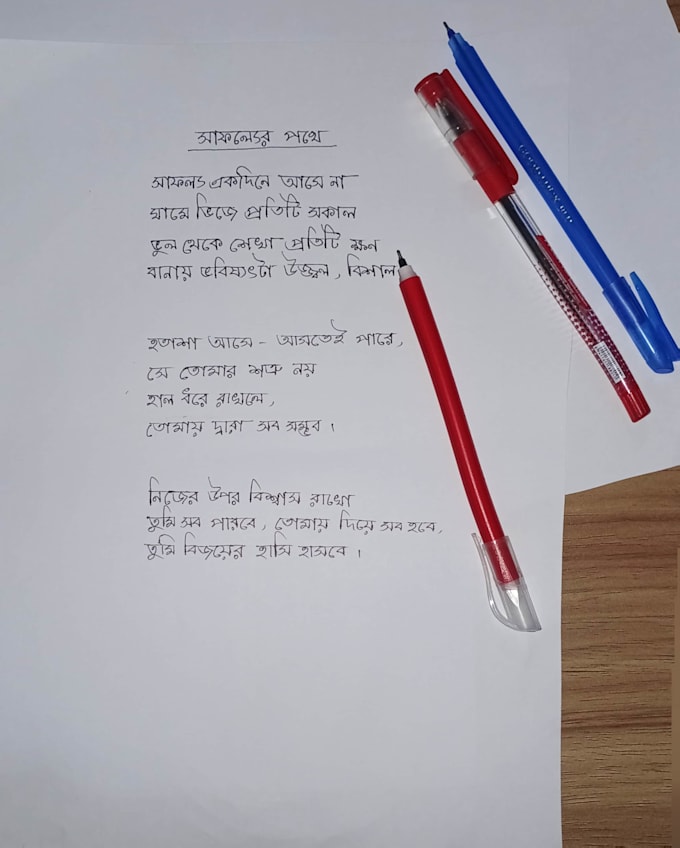 সাফল্যের পথে
সাফল্য একদিনে আসে না
ঘামে ভিজে প্রতিটি সকাল
ভুল থেকে শেখা প্রতিটি ক্ষণ
বানায় ভবিষ্যৎটা উজ্জ্বল, বিশাল
হতাশা আসে - আসতেই পারে,
সে তোমার শত্রু নয়
হাল ধরে রাখলে,
তোমায় দ্বারা সব সম্ভব।
নিজের উপর বিশ্বাস রাখো
তুমি সব পারবে, তোমায় দিয়ে সব হবে,
তুমি বিজয়ের হাসি হাসবে।